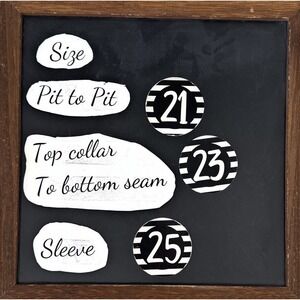 Size
Pit to Pit 21
Top collar
To bottom seam 23
Sleeve 25